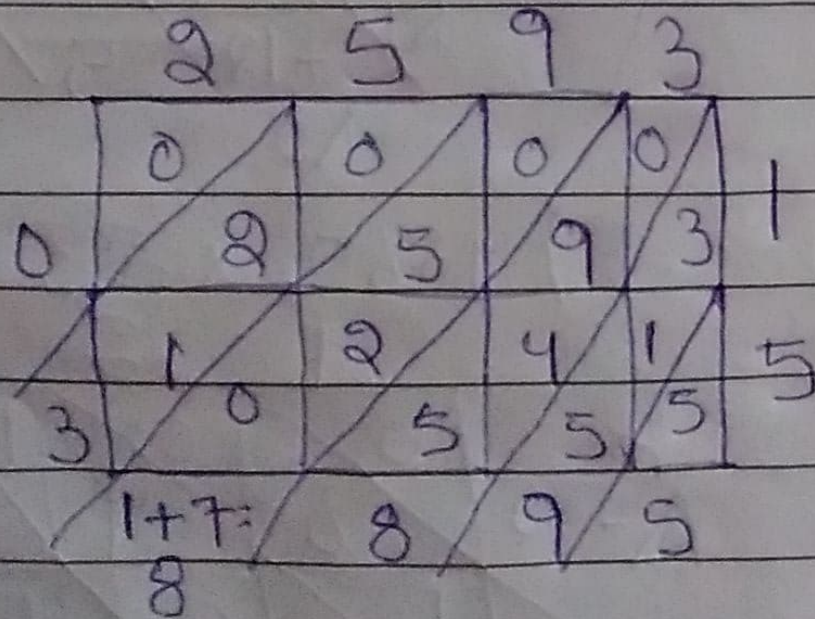 2 5 9 3
0 0 0 0 1
0 2 5 9 3
1 2 4 1 5
3 0 5 5 5
1+7= 8 9 5
8